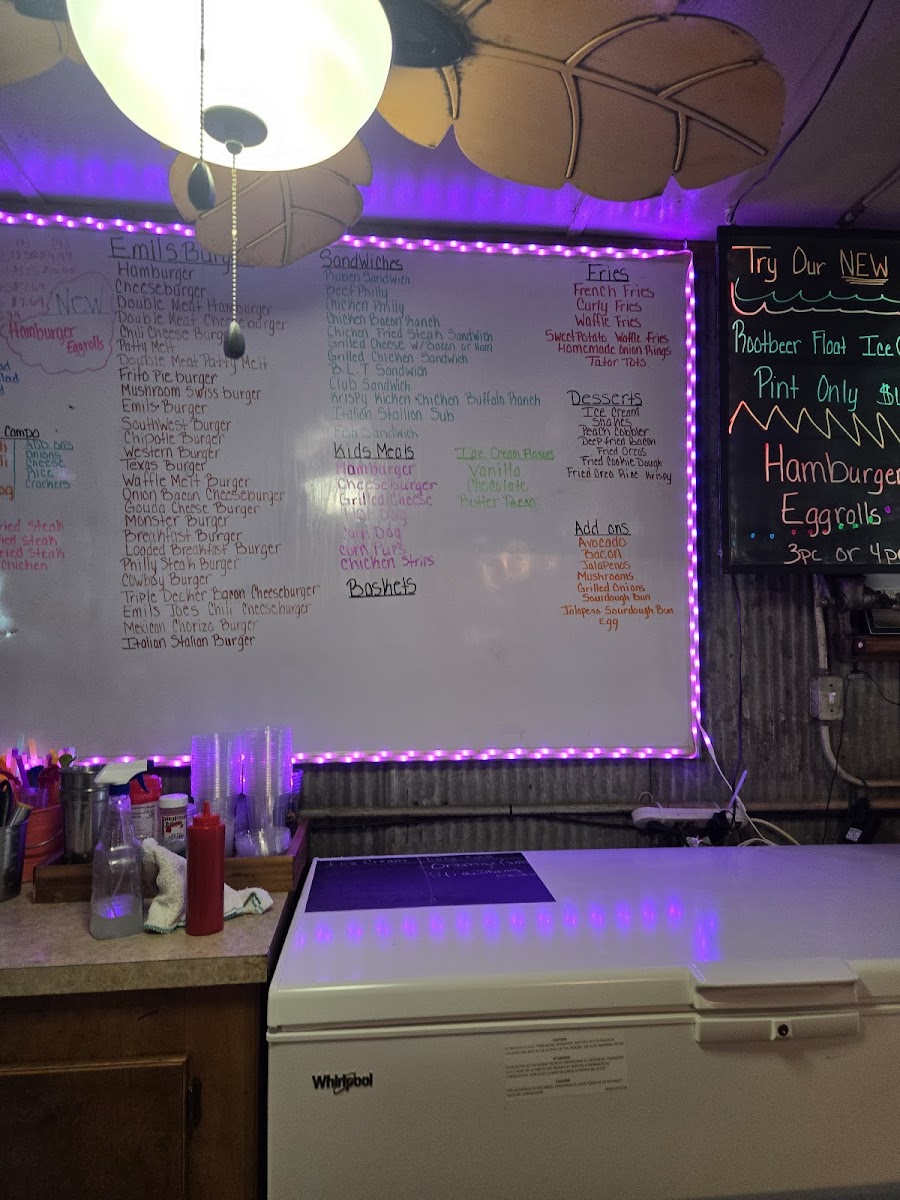 New
Hamburger
Eggrolls
Campo
Add ons
Onions
Cheese
Rice
Crackers
Steak
Steak
Steak
Chicken
Emils Burg
Hamburger
Cheeseburger
Double Meat Hamburger
Double Meat Cheeseburger
Chili Cheese Burger
Patty Melt
Double Meat Patty Melt
Frito Pie burger
Mushroom Swiss burger
Emils Burger
SouthWest Burger
Chipotle Burger
Western Burger
Texas Burger
Waffle Melt Burger
Onion Bacon Cheeseburger
Gouda Cheese Burger
Monster Burger
Breakfast Burger
Loaded Breakfast Burger
Philly Steak Burger
Cowboy Burger
Triple Decker Bacon Cheeseburger
Emils Joes Chili Cheeseburger
Mexican Chorizo Burger
Italian Stalian Burger
Sandwiches
Ruben Sandwich
Beef Philly
Chicken Philly
Chicken Bacon Ranch
Chicken Fried Steak Sandwich
Grilled Cheese w/ Bacon or Ham
Grilled Chicken Sandwich
B.L.T Sandwich
Club Sandwich
Krispy Kichen Chicken Buffalo Ranch
Italian Stallion Sub
Fish Sandwich
Kids Meals
Hamburger
Cheeseburger
Grilled Cheese
Hot Dog
Corn Dog
Corn Pups
Chicken Strips
Baskets
Ice Cream Flavors
Vanilla
Chocolate
Butter Pecan
Fries
French Fries
Curly Fries
Waffle Fries
Sweet Potato Waffle Fries
Homemade Onion Rings
Tator Tots
Desserts
Ice Cream
Shakes
Peach Cobbler
Deep fried Bacon
Fried Oreos
Fried Cookie Dough
Fried Oreo Rice Krispy
Add ons
Avocado
Bacon
Jalapenos
Mushrooms
Grilled Onions
Sourdough Bun
Jalapeno Sourdough Bun
Egg
Try Our NEW
Rootbeer Float Ice
Pint Only
Hamburger
Eggrolls
3pc or 4p
Ice Cream
Whirlpool
CAUTION